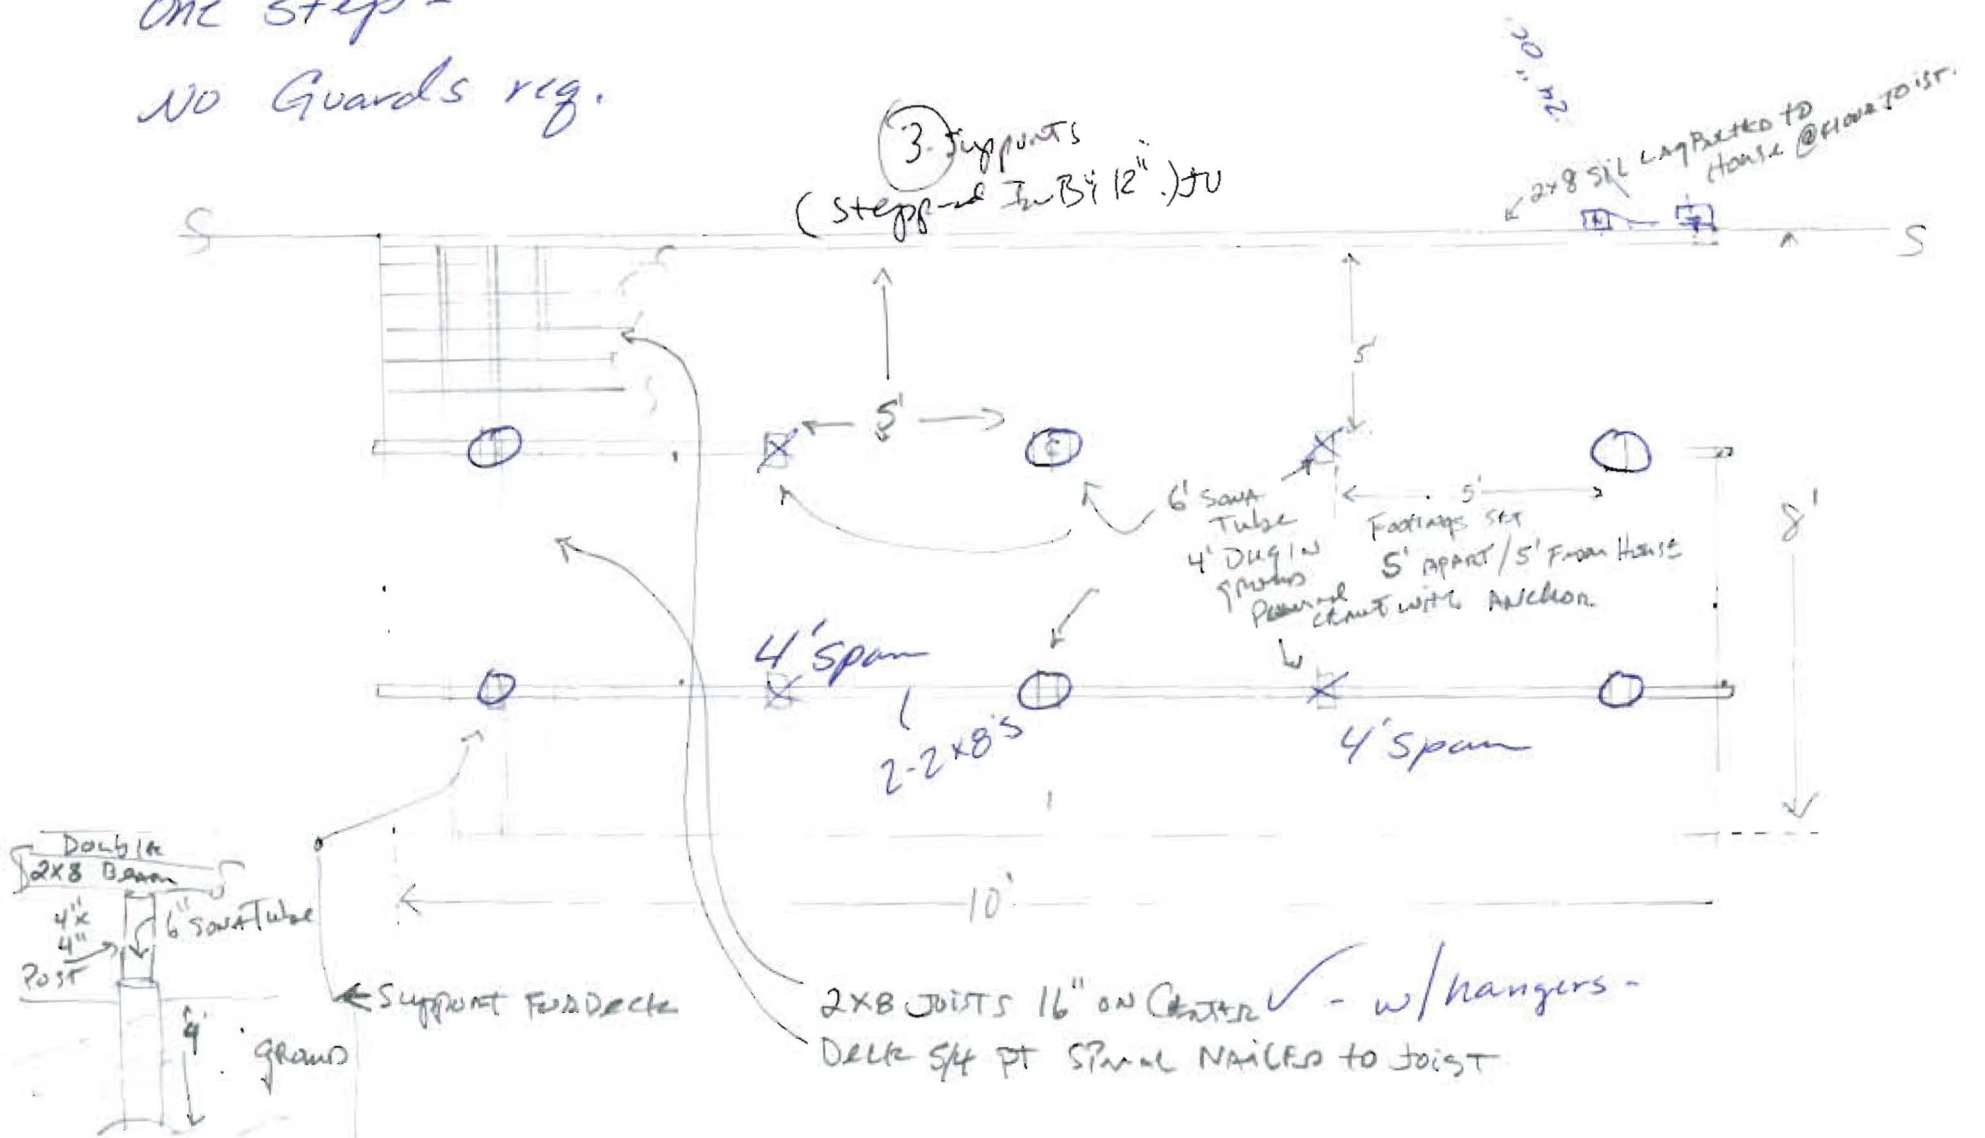 One Step -
No Guards req.
3 Supports
(stepped In By 12".) JU
24" OC
2x8 SIL LAg Bolted to
House @ Floor JOIST.
S
S
5'
5'
6' SONA
Tube
4' Dug IN
ground
Poured
cement with Anchor
5'
Footings Set
5' apart / 5' From House
8'
4' span
2-2x8's
4' span
Double
2x8 Beam
4"x
4"
Post
6" SONA Tube
4'
ground
10'
Support For Deck
2x8 JOISTS 16" ON Center ✓ - w/hangers -
Deck 5/4 PT Spiral NAILED to JOIST